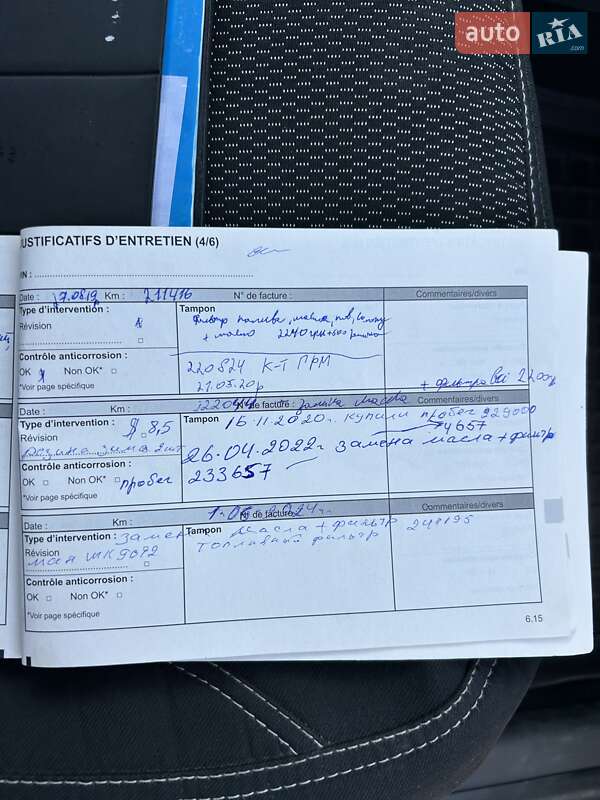 auto RIA .com
JUSTIFICATIFS D'ENTRETIEN (4/6)
Date : 17.08.19 Km : 211416 N° de facture : Commentaires/divers
Type d'intervention : Tampon
Révision
фильтр палива, масла, пов, салону
+ масло 2240 грн +500
Contrôle anticorrosion :
OK Non OK*
*Voir page spécifique
220824 К-Т ГРМ
21.03.20р
+ фильтра всі 2200р
Date : Km : N° de facture : заміна масла Commentaires/divers
Type d'intervention : 8,5 Tampon
16.11.2020г. купили пробег 229000
4657
Révision
резина зима 2шт
26.04.2022г замена масла + фильтр
Contrôle anticorrosion :
233657
OK Non OK* пробег
*Voir page spécifique
Date : Km : N° de facture 1.06.2024г. Commentaires/divers
Type d'intervention : замен Tampon масла + фильтр 248195
Révision
топливный фильтр
Contrôle anticorrosion :
OK Non OK*
*Voir page spécifique
6.15